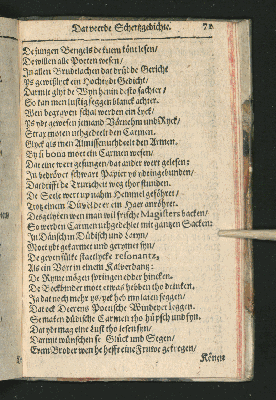 Dat veerde Schertzgedichte. 72
De jungen Bengels de kuem könt lesen/
De willen alle Poeten wesen/
In allen Brudelachen dat drüdde Gericht
Ys gewißlyck ein Hochtydt Gedicht/
Darmit glyt de Wyn henin desto sachter/
So kan men lustig seggen blanck achter.
Wen begraven schal werden ein Lyck/
Ys ydt gewesen jemand Vörnehm und Ryck/
Strax moten uthgedeelt den Carmen.
Glyck als men Almissen uthdeelt den Armen.
By
bona mott ein Carmen wesen/
Dat eine wert gesungen/dat ander wert gelesen:
In bedrövet schwart Papier ys ydt ingebunden/
Dat drifft de Truricheit weg thor stunden.
De Seele wert up nahm Hemmel geföhret/
Trotz einem Düvel de er ein Haer anröhret.
Desgelyken wen man wil frische Magisters backen/
So werden Carmen uthgedeelet mit gantzen Sacken:
In Dänsch in Düdisch und Latyn/
Mott ydt gekarmet und gerymet syn/
De gevensülte staetlycke resonants,
Als ein Bort in einem Kalverdantz:
De Ryme mögen springen edder hincken.
De Bockbinder mott etwas hebben tho drincken.
Ja dat noch mehr ys/yck heb my laten seggen/
Dat ock Deerens Poetische Wundeyer leggen.
Se maken düdische Carmen tho hüpsch und syn.
Dat ydt mag eine Lust tho lesen syn/
Darmit wünschen se Glück und Segen/
Eram Broder wen he hefft eine Fruwe gekregen/
Könen